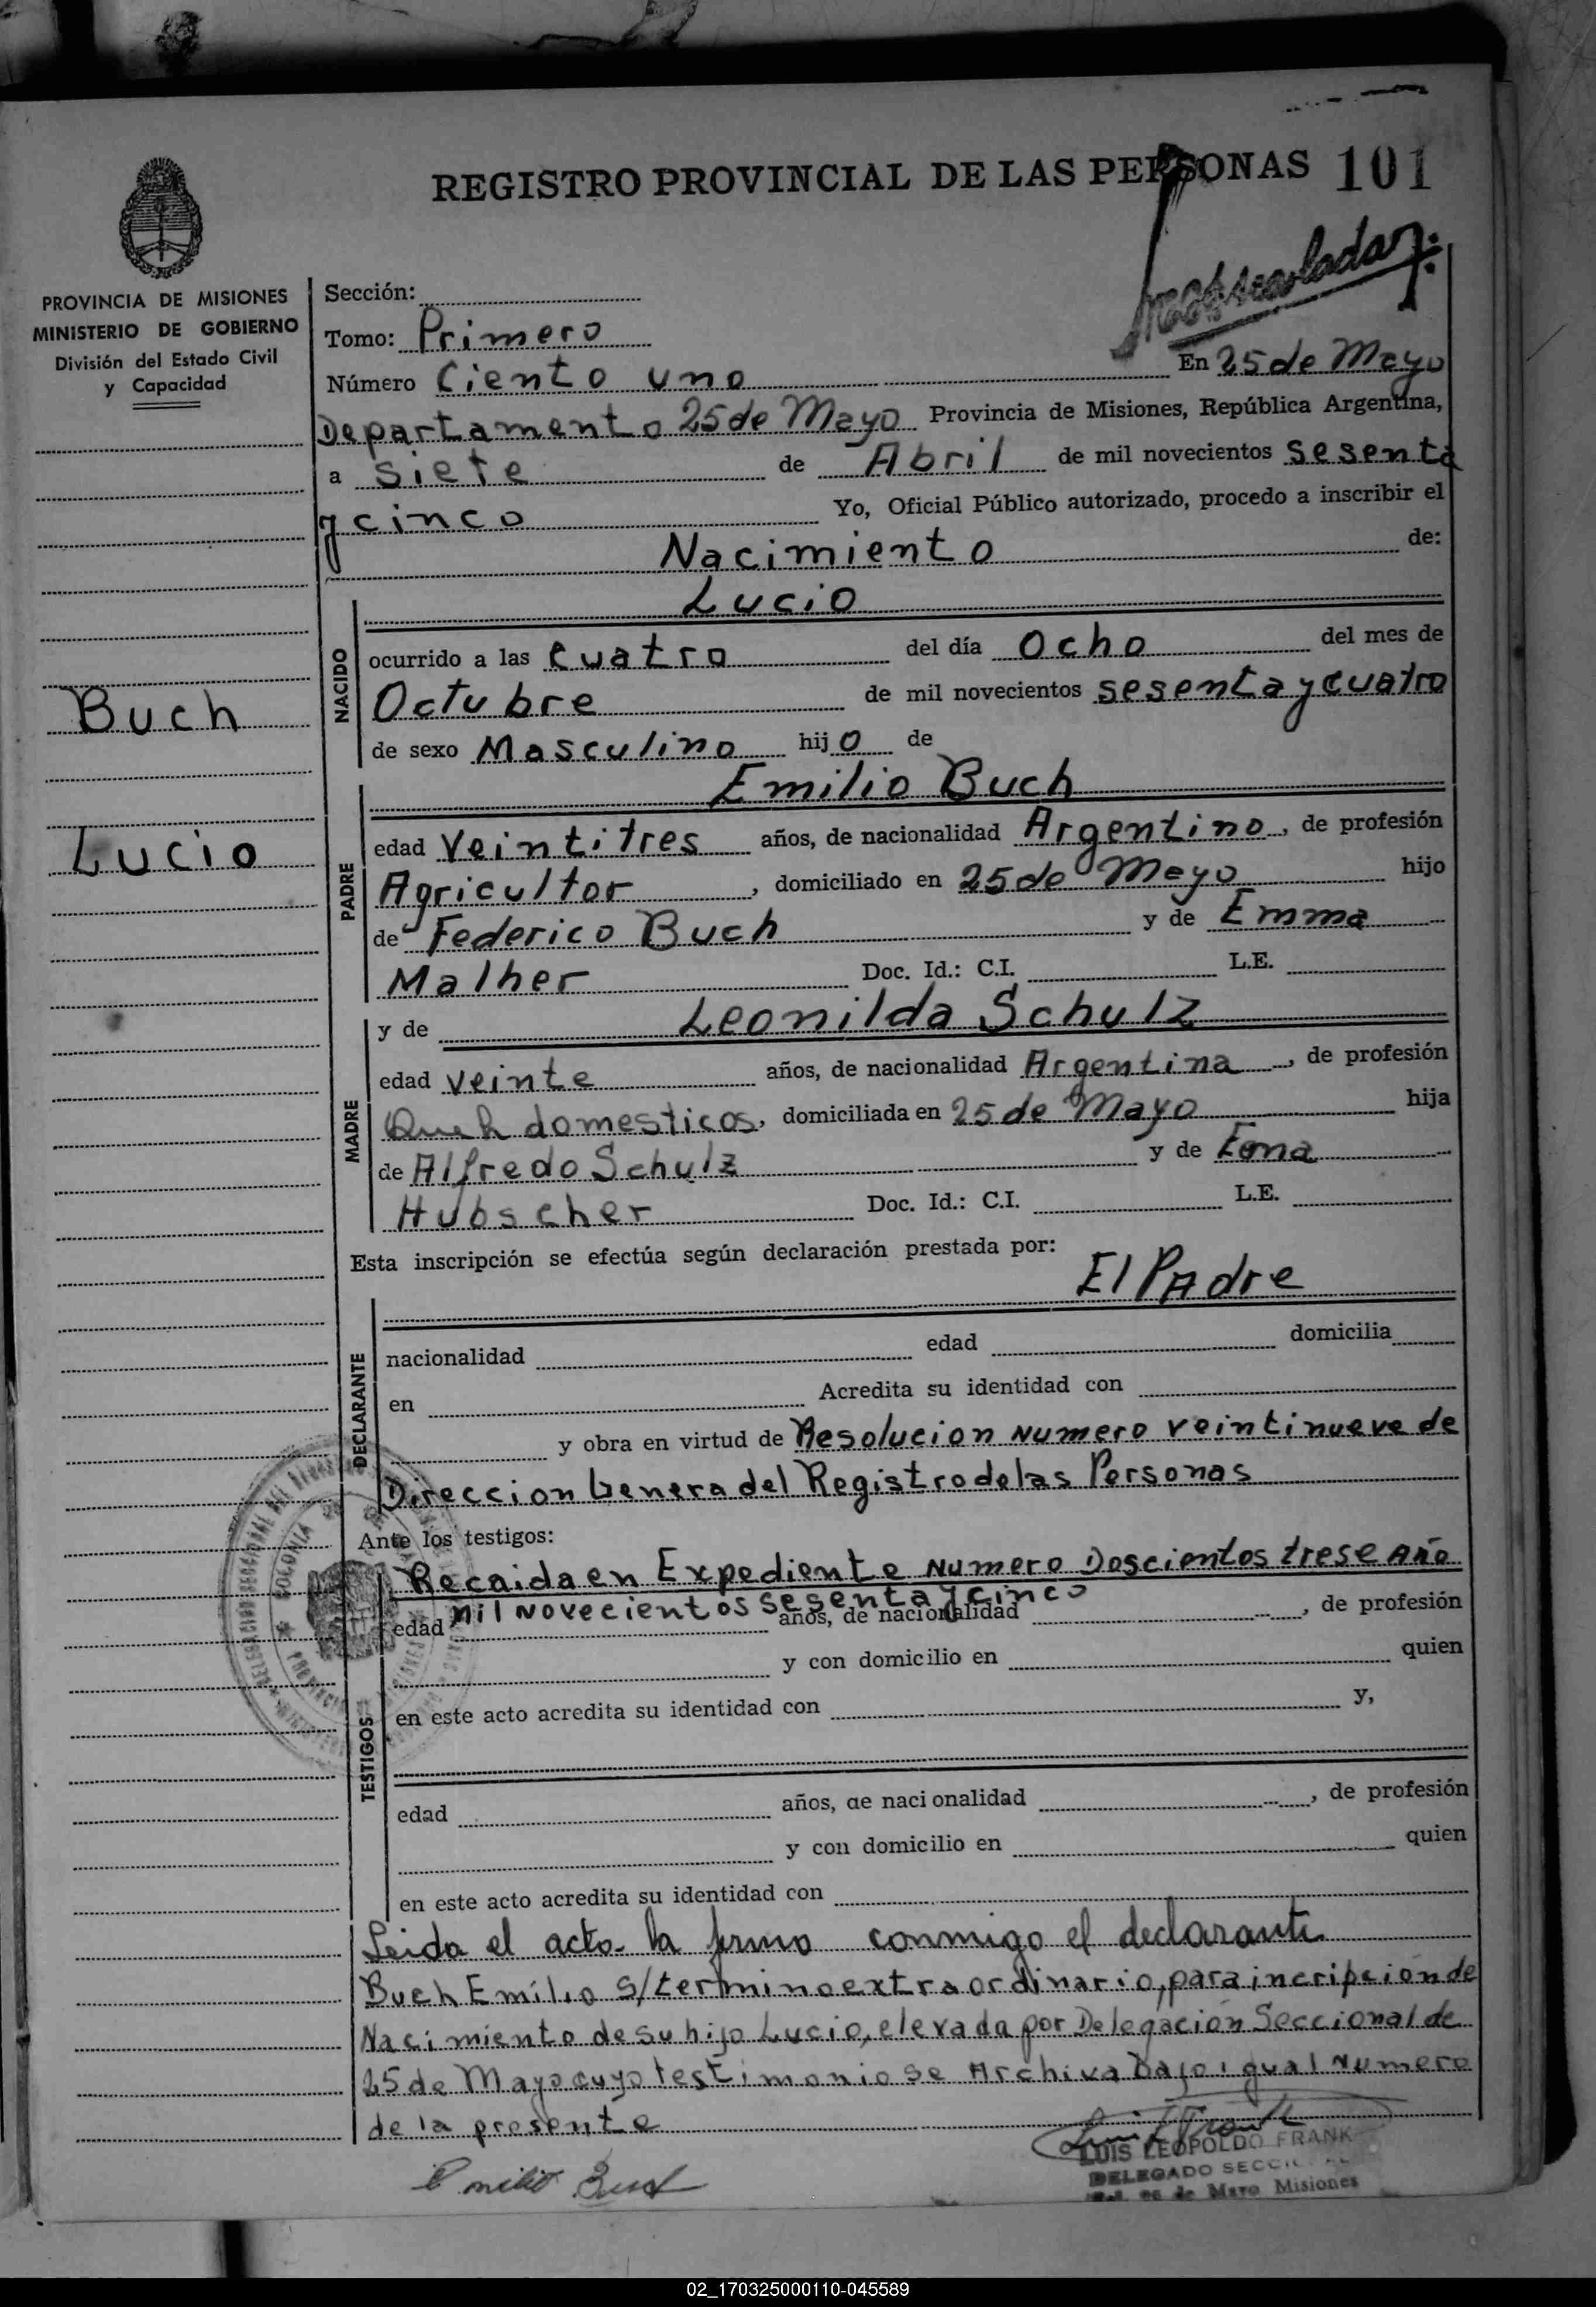 REGISTRO PROVINCIAL DE LAS PERSONAS 101
PROVINCIA DE MISIONES
MINISTERIO DE GOBIERNO
División del Estado Civil
y Capacidad
Sección:
Tomo: Primero
Número Ciento uno En 25 de Mayo
Departamento 25 de Mayo Provincia de Misiones, República Argentina,
a siete de Abril de mil novecientos sesenta
y cinco Yo, Oficial Público autorizado, procedo a inscribir el
Nacimiento de:
Lucio
NACIDO
ocurrido a las cuatro del día Ocho del mes de
Octubre de mil novecientos sesenta y cuatro
de sexo Masculino hijo de
Buch
Lucio
Emilio Buch
PADRE
edad Veintitres años, de nacionalidad Argentino, de profesión
Agricultor, domiciliado en 25 de Mayo hijo
de Federico Buch y de Emma
Malher Doc. Id.: C.I. L.E.
y de Leonilda Schulz
MADRE
edad veinte años, de nacionalidad Argentina, de profesión
Queh domesticos, domiciliada en 25 de Mayo hija
de Alfredo Schulz y de Ema
Hubscher Doc. Id.: C.I. L.E.
Esta inscripción se efectúa según declaración prestada por:
El PAdre
DECLARANTE
nacionalidad edad domicilia
en Acredita su identidad con
y obra en virtud de Resolucion Numero veintinueve de
Direccion Genera del Registro de las Personas
Ante los testigos:
Recaida en Expediente Numero Doscientos trese Año
mil Novecientos sesenta y cinco
edad años, de nacionalidad, de profesión
y con domicilio en quien
en este acto acredita su identidad con y,
TESTIGOS
edad años, de nacionalidad, de profesión
y con domicilio en quien
en este acto acredita su identidad con
Leida el acto la firmo conmigo el declarante
Buch Emilio s/termino extraordinario, para incripción de
Nacimiento de su hijo Lucio, elevada por Delegación Seccional de
25 de Mayo cuyo testimonio se Archiva bajo igual Numero
de la presente
Emilio Buch
LUIS LEOPOLDO FRANK
DELEGADO
de Mayo Misiones
02_170325000110-045589